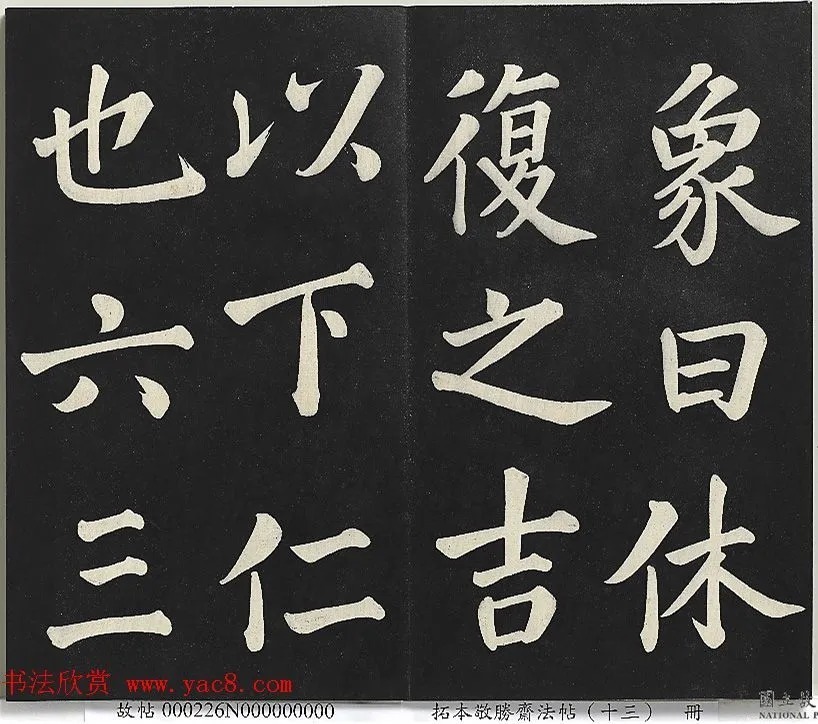 象曰休
復之吉
以下仁
也六三
书法欣赏 www.yac8.com
故帖 000226N000000000
拓本敬勝齋法帖（十三） 冊
國立故
NATIONAL P